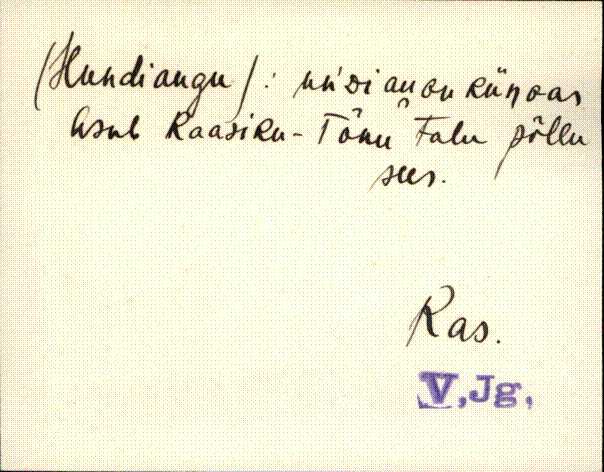 (Hundiangu): un'diangu küngas
Asub Kaasiku-Tõnu talu põllu
sees.
Ras.
V, Jg,